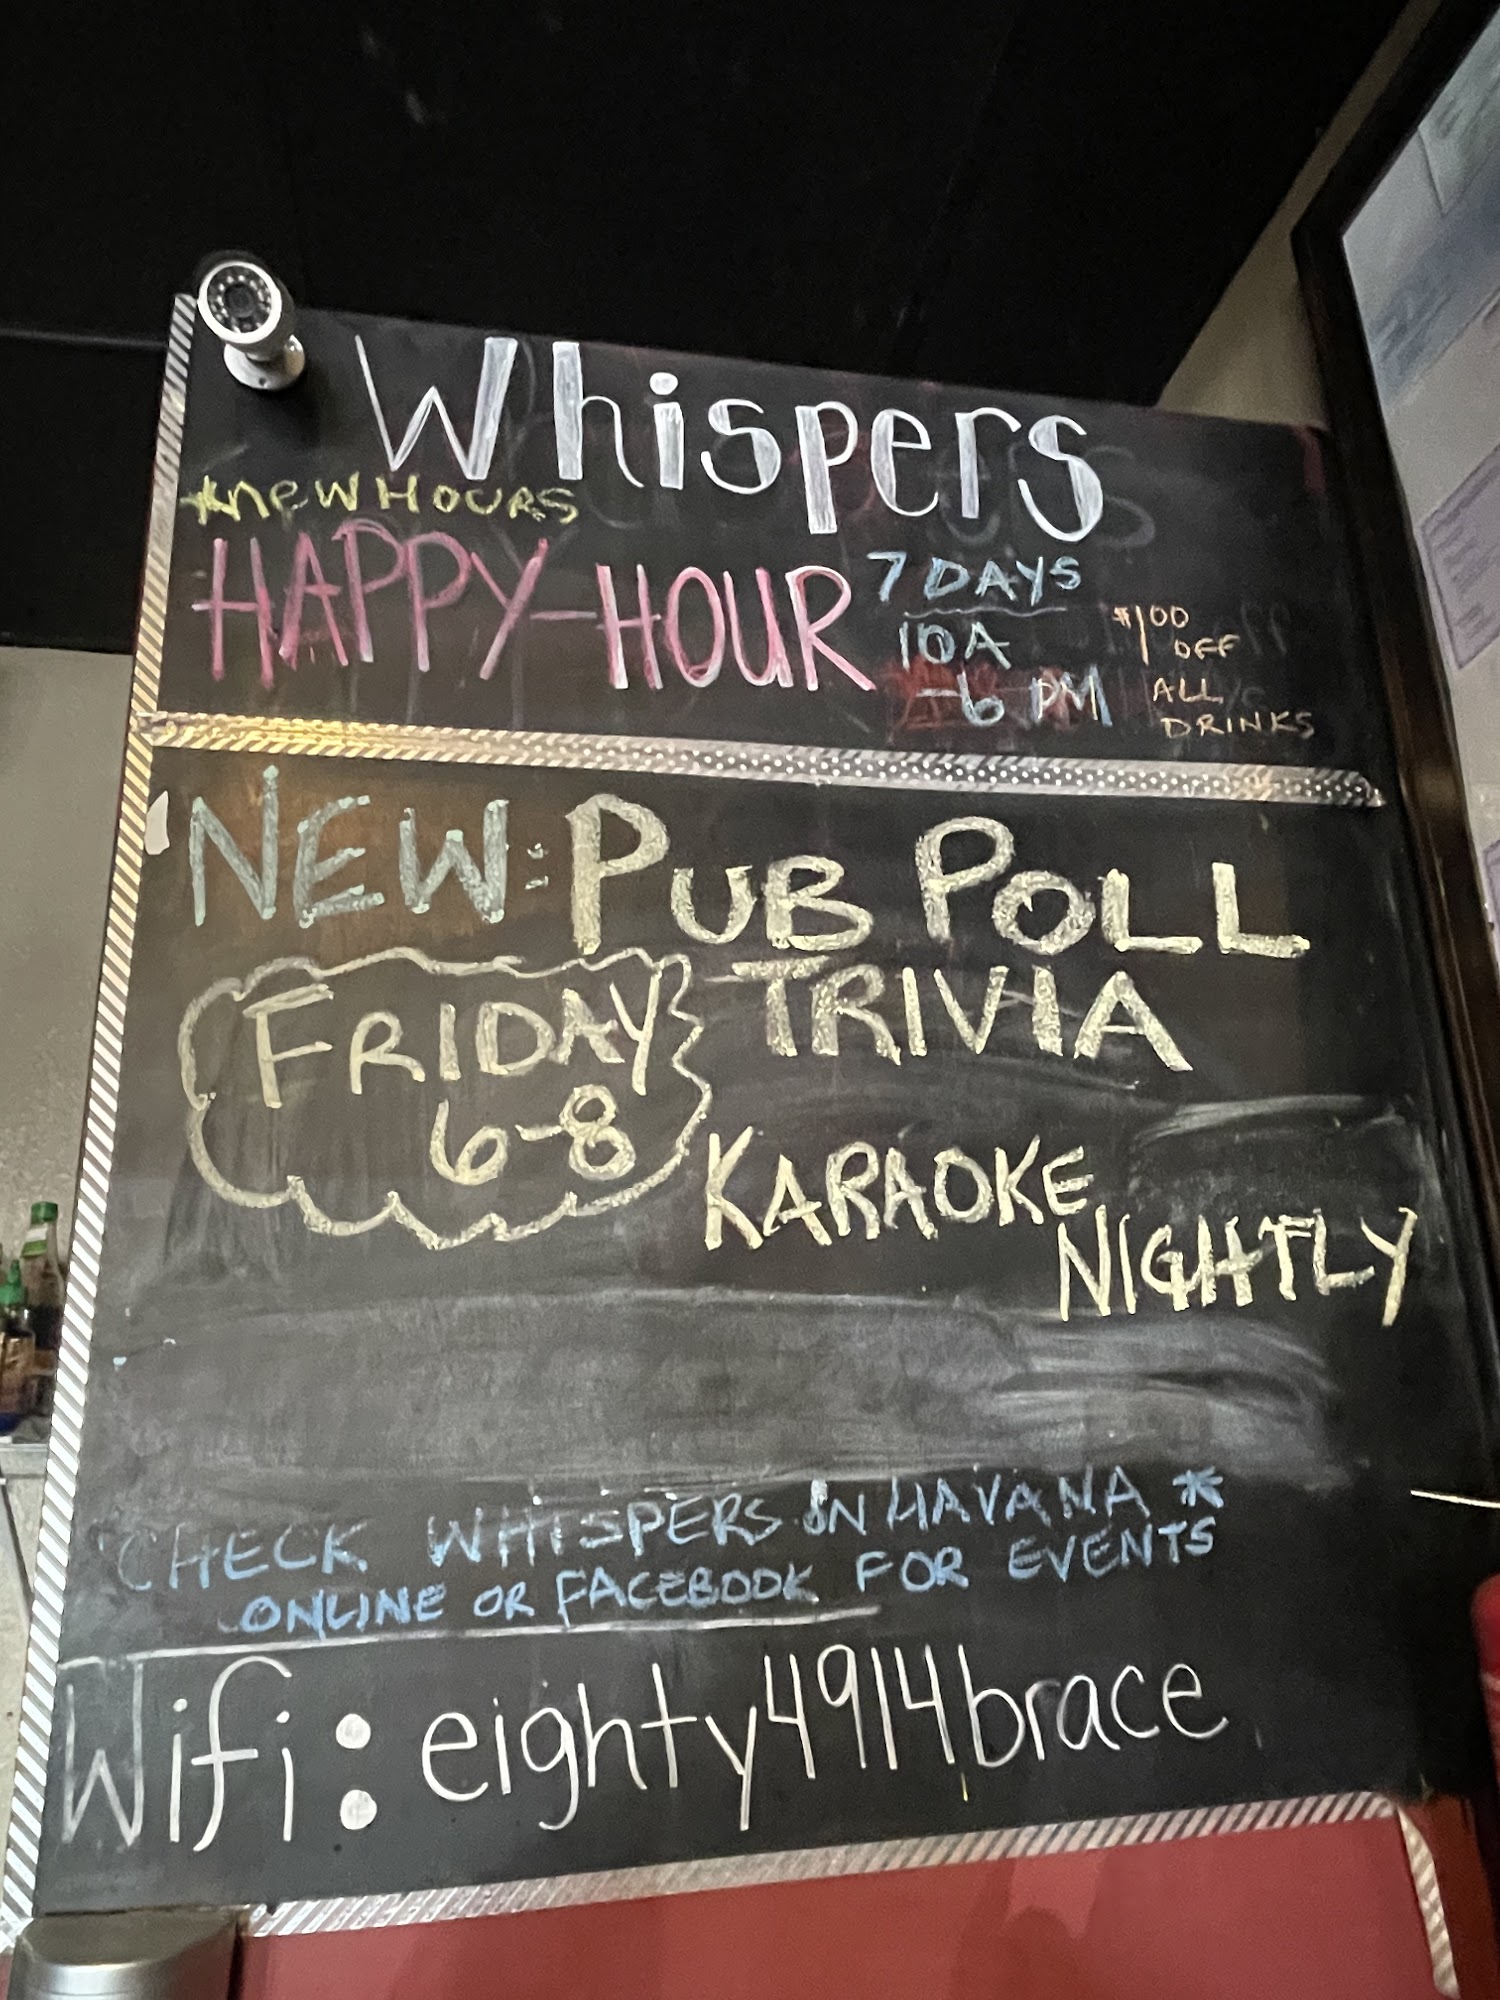 Whispers
*new HOURS
HAPPY-HOUR
7 DAYS
10A
-6 PM
$100
OFF
ALL
DRINKS
NEW: PUB POLL
TRIVIA
FRIDAY
6-8
KARAOKE
NIGHTLY
CHECK WHISPERS IN HAVANA *
ONLINE OR FACEBOOK FOR EVENTS
Wifi: eighty4914brace